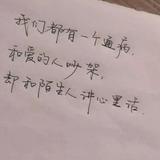 我们都有一个通病,
和爱的人吵架,
却和陌生人讲心里话.